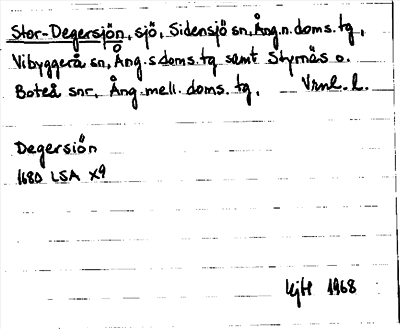 Stor-Degersjön, sjö, Sidensjö sn, Ång. n. doms. tg,
Vibyggerå sn, Ång. s doms. tg samt Styrnäs o.
Boteå snr, Ång. mell. doms. tg. Vrnl. l.
Degersiön
1680 LSA X9
1968